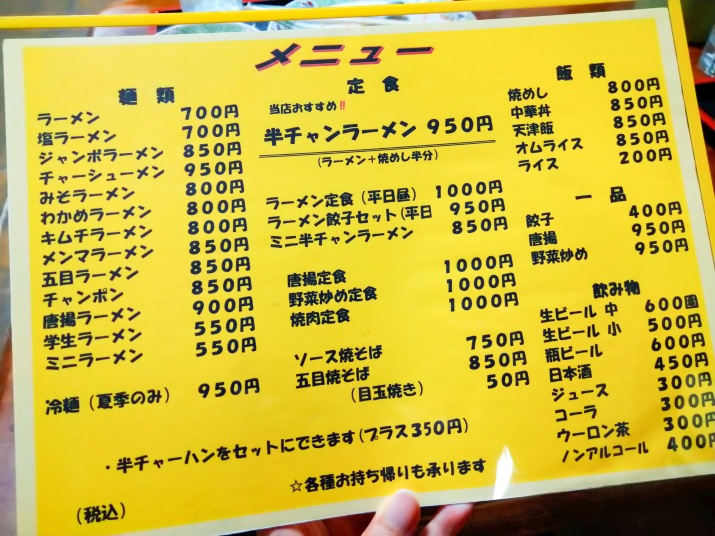 メニュー
麺 類
ラーメン 700円
塩ラーメン 700円
ジャンボラーメン 850円
チャーシューメン 950円
みそラーメン 800円
わかめラーメン 800円
キムチラーメン 800円
メンマラーメン 850円
五目ラーメン 850円
チャンポン 850円
唐揚ラーメン 900円
学生ラーメン 550円
ミニラーメン 550円
冷麺（夏季のみ） 950円
定 食
当店おすすめ!!
半チャンラーメン 950円
（ラーメン＋焼めし半分）
ラーメン定食（平日昼） 1000円
ラーメン餃子セット（平日 950円
ミニ半チャンラーメン 850円
唐揚定食 1000円
野菜炒め定食 1000円
焼肉定食 1000円
ソース焼そば 750円
五目焼そば 850円
（目玉焼き） 50円
飯 類
焼めし 800円
中華丼 850円
天津飯 850円
オムライス 850円
ライス 200円
一 品
餃子 400円
唐揚 950円
野菜炒め 950円
飲み物
生ビール 中 600圓
生ビール 小 500円
瓶ビール 600円
日本酒 450円
ジュース 300円
コーラ 300円
ウーロン茶 300円
ノンアルコール 400円
・半チャーハンをセットにできます（プラス350円）
☆各種お持ち帰りも承ります
（税込）